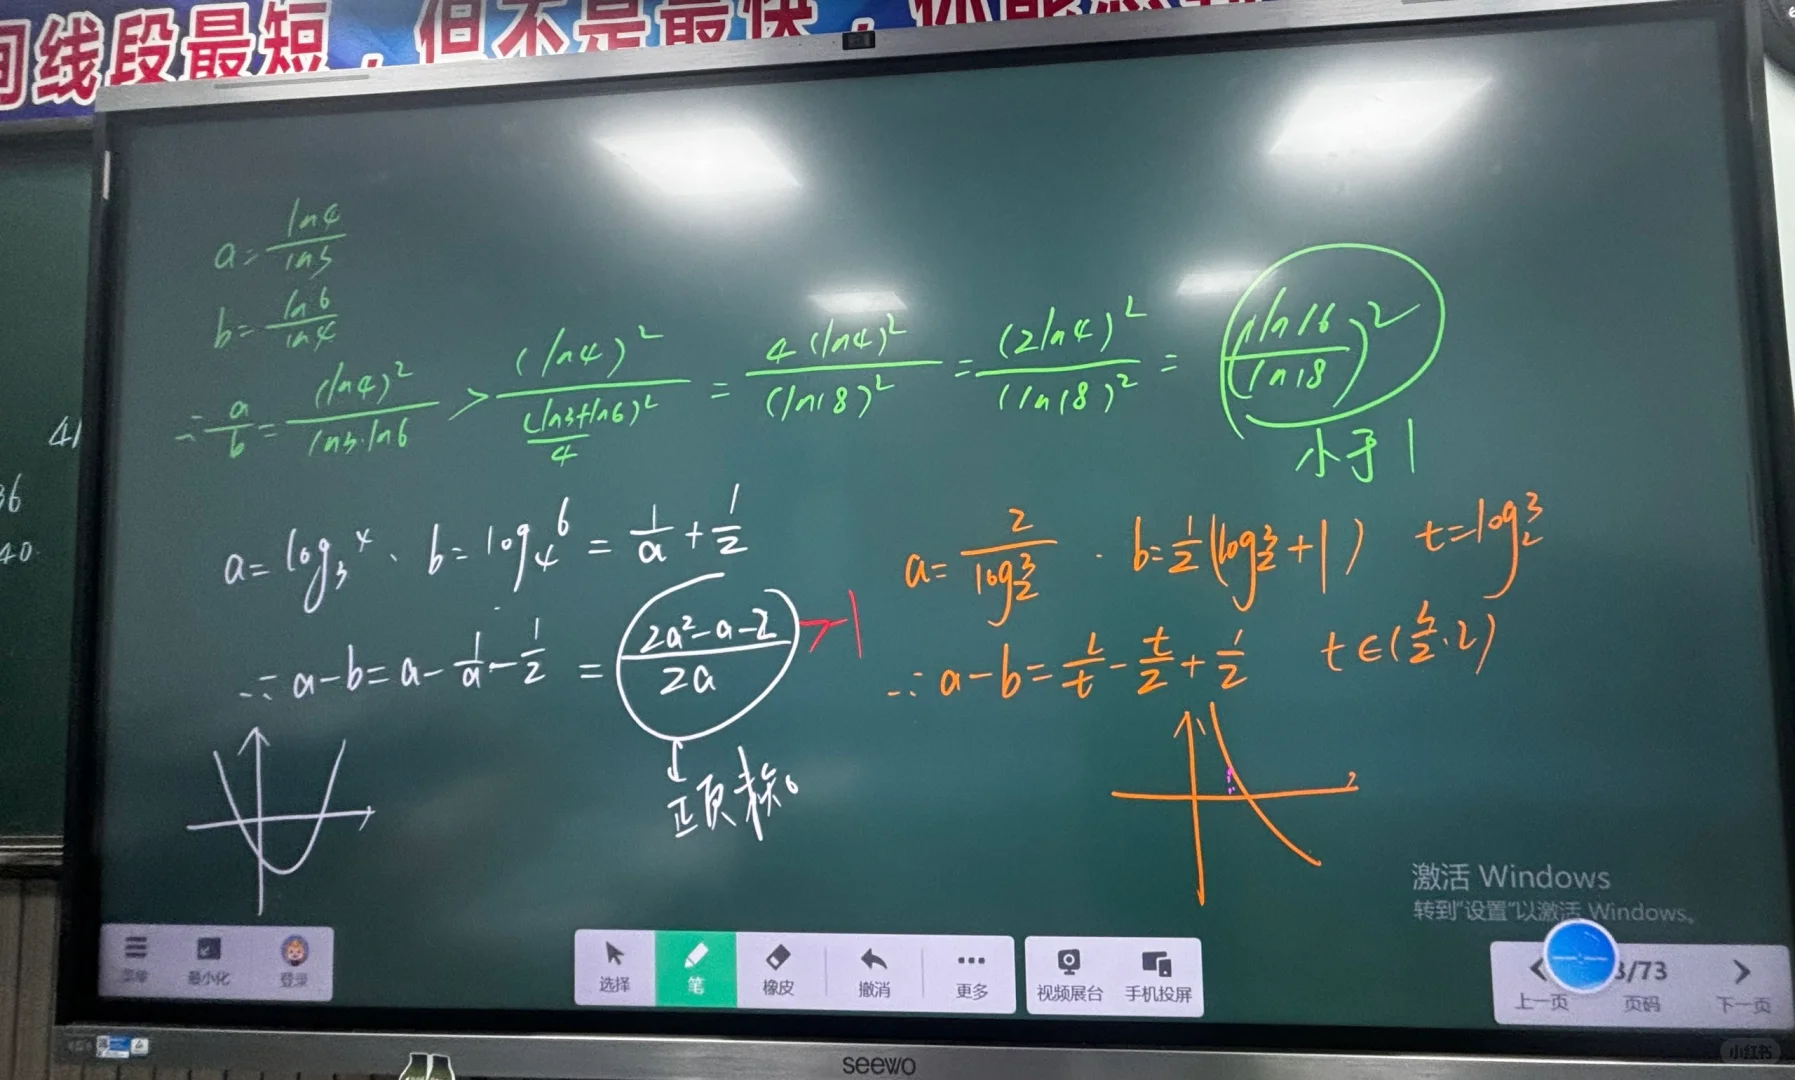 间线段最短，但不是最快，你能
a = ln4/ln3
b = ln6/ln4
∵ a/b = (ln4)²/(ln3·ln6) > (ln4)²/((ln3+ln6)²/4) = 4(ln4)²/(ln18)² = (2ln4)²/(ln18)² = (ln16/ln18)²
小于1
36
40
a = log₃4、b = log₄6 = 1/a + 1/2
∵ a-b = a - 1/a - 1/2 = (2a²-a-2)/2a >-1
正负未知。
a = 2/log₂3 . b = 1/2(log₂3+1) t = log₂3
∵ a-b = 2/t - t/2 + 1/2 t∈(3/2.2)
激活 Windows
转到"设置"以激活 Windows。
菜单 最小化 登录
选择 笔 橡皮 撤消 更多
视频展台 手机投屏
3/73
上一页 页码 下一页
seewo
小红书